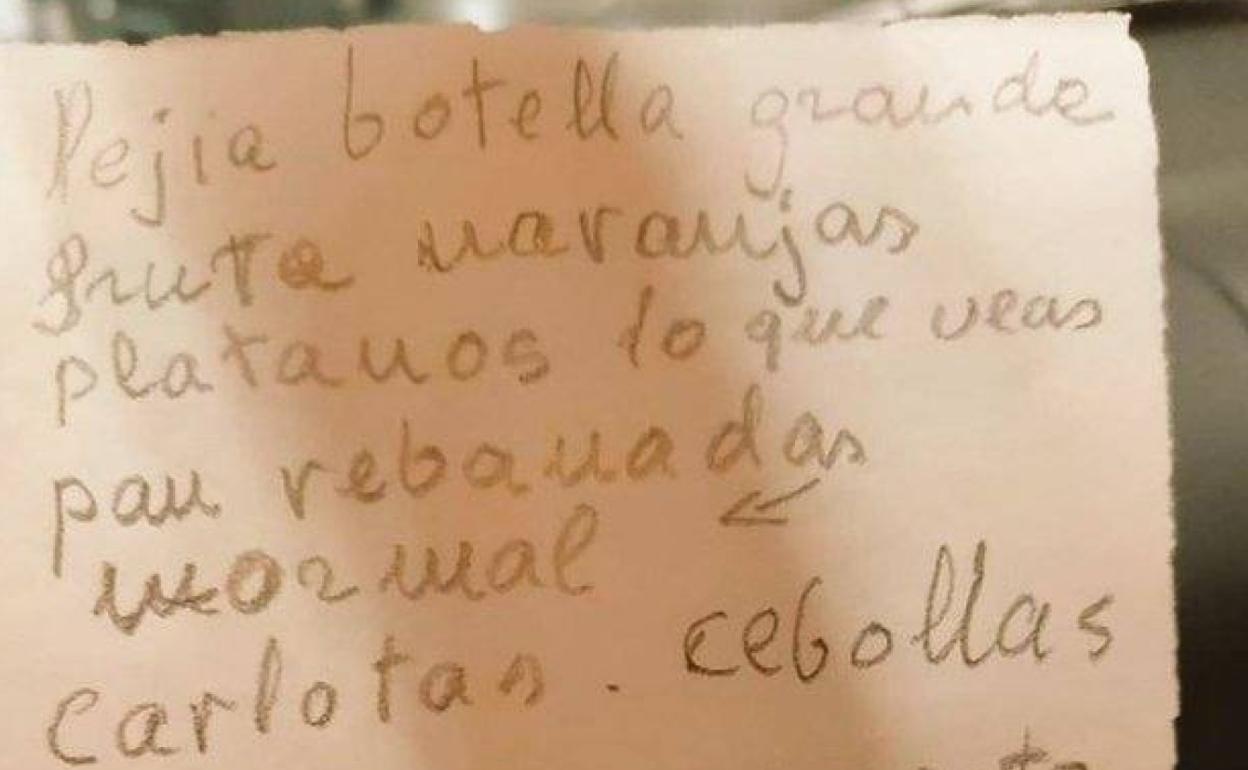 lejia botella grande
fruta naranjas
platanos lo que veas
pan rebanadas
normal
carlotas. cebollas